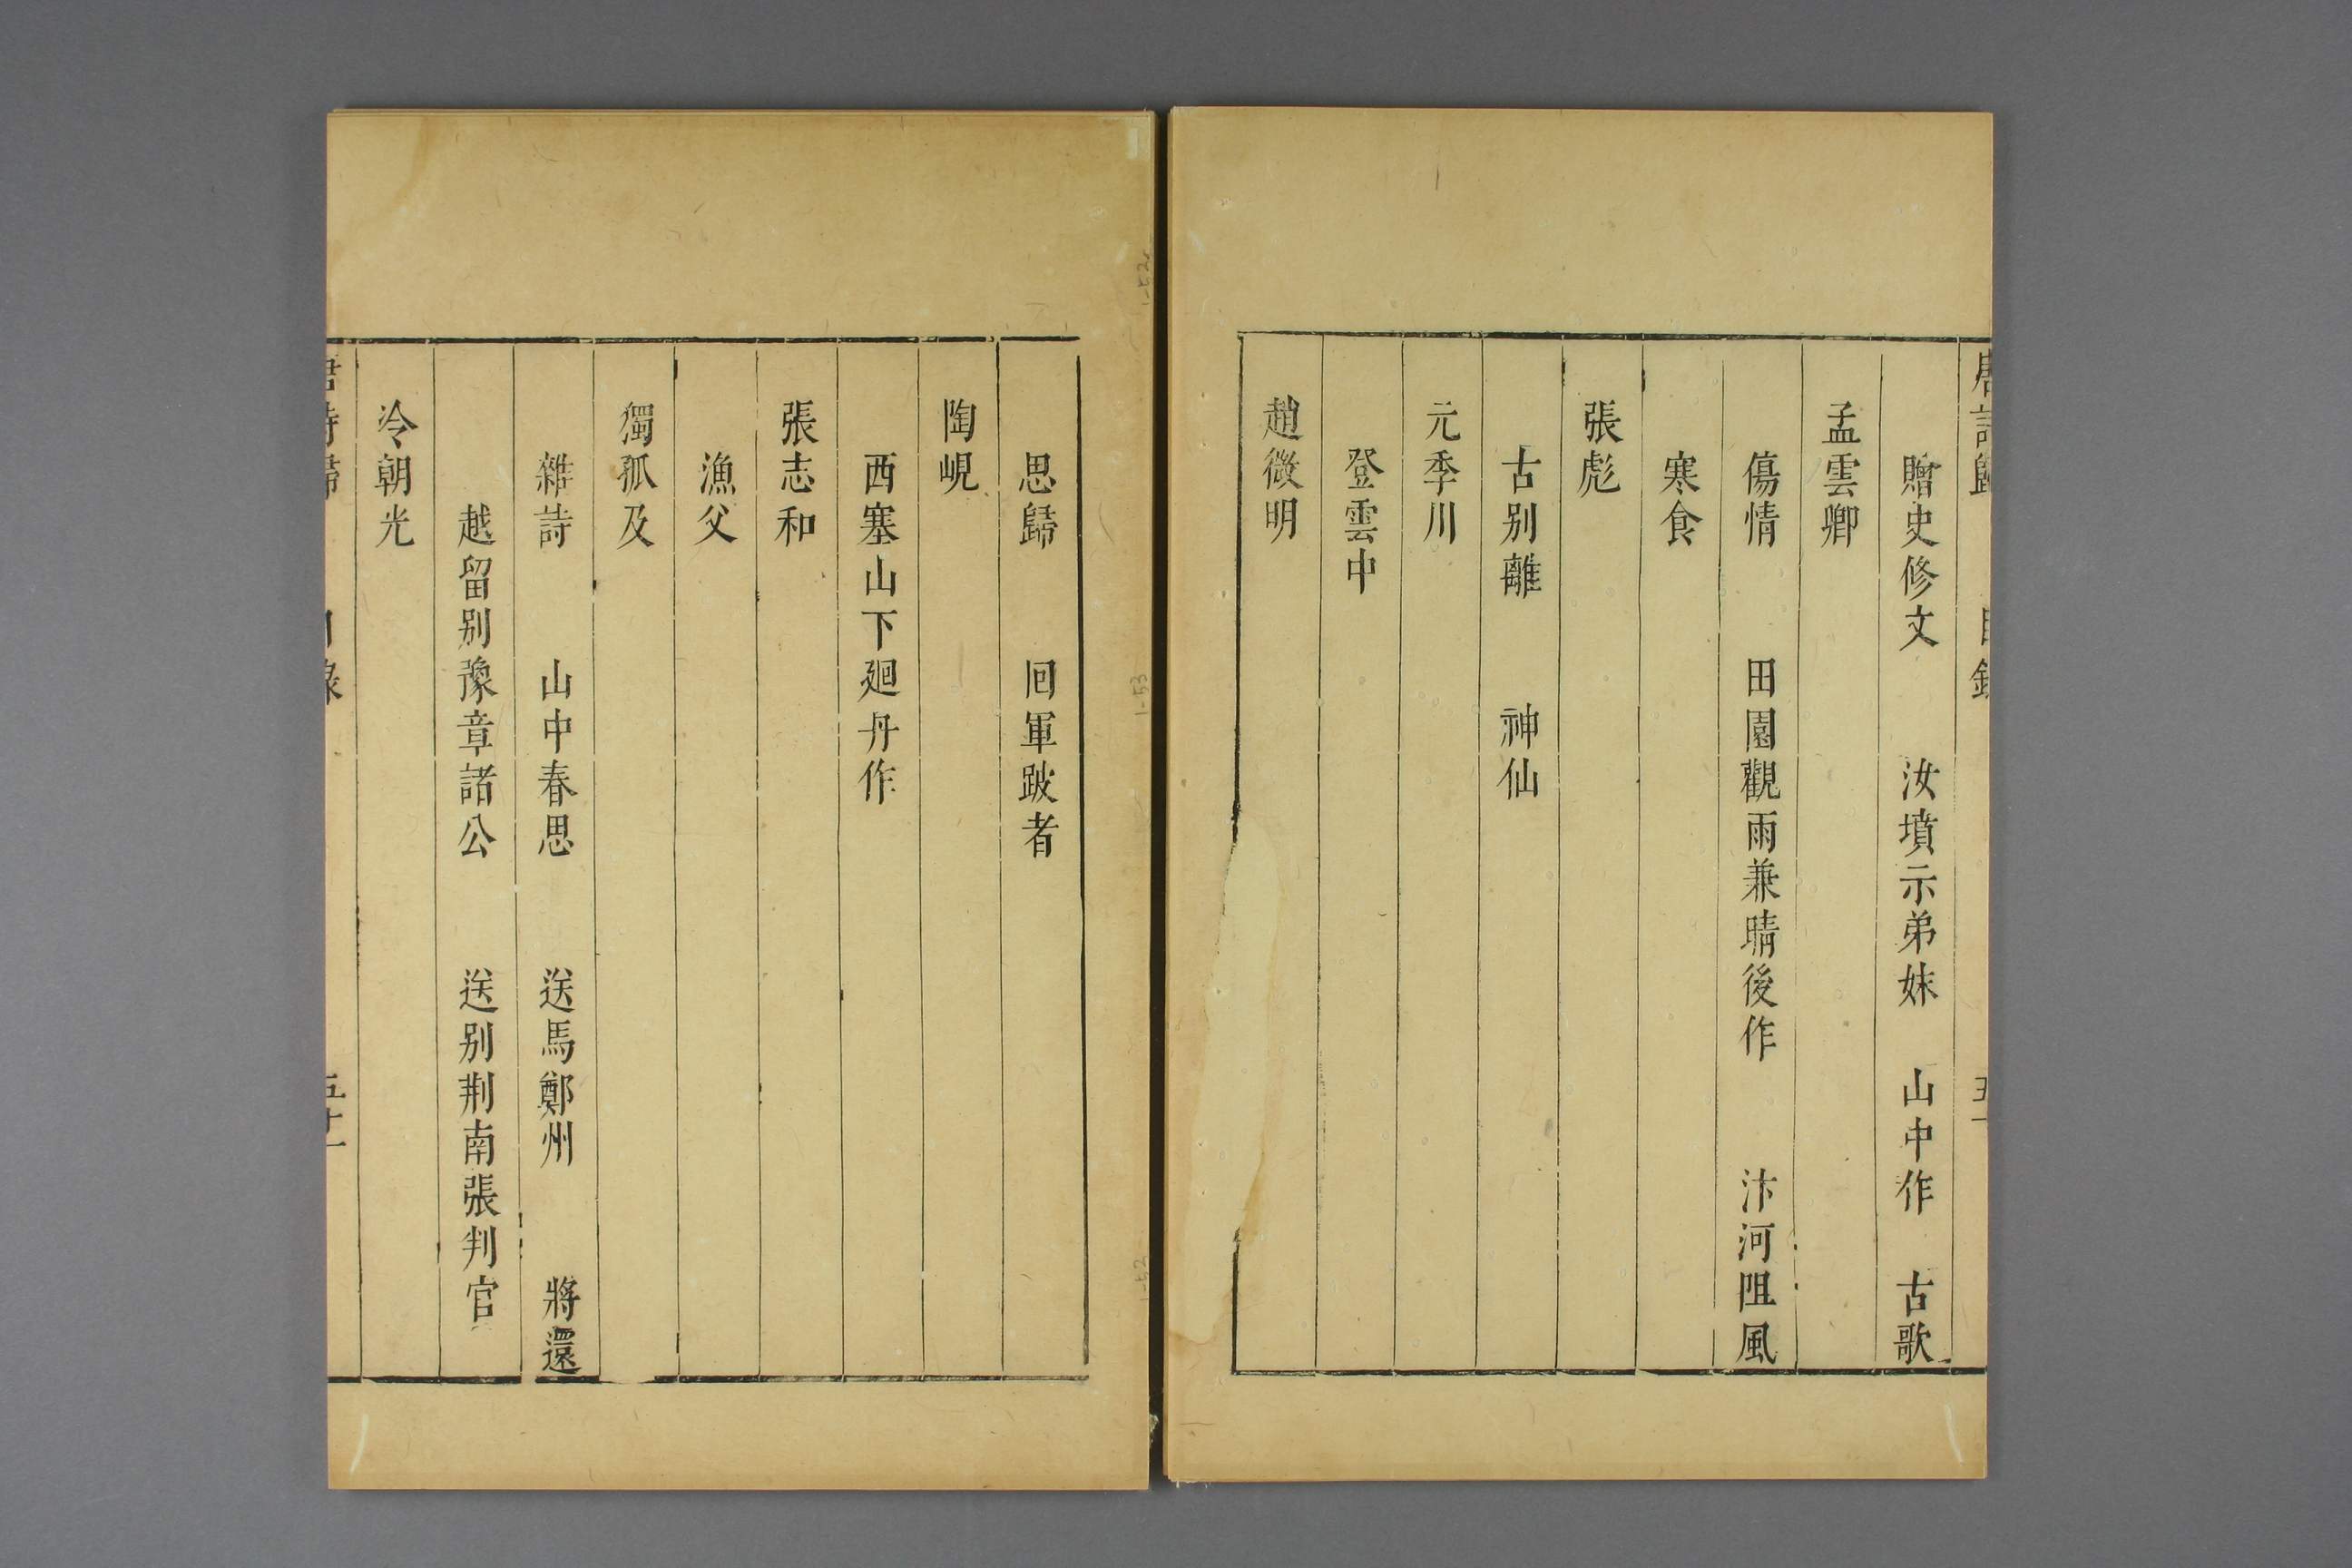 唐詩歸 目錄 五十
贈史修文 汝墳示弟妹 山中作 古歌
孟雲卿
傷情 田園觀雨兼晴後作 汴河阻風
寒食
張彪
古別離 神仙
元季川
登雲中
趙微明
思歸 囘軍跛者
陶峴
西塞山下廻丹作
張志和
漁父
獨孤及
雜詩 山中春思 送馬鄭州 將還
越留別豫章諸公 送別荆南張判官
冷朝光
唐詩歸 目錄 五十一